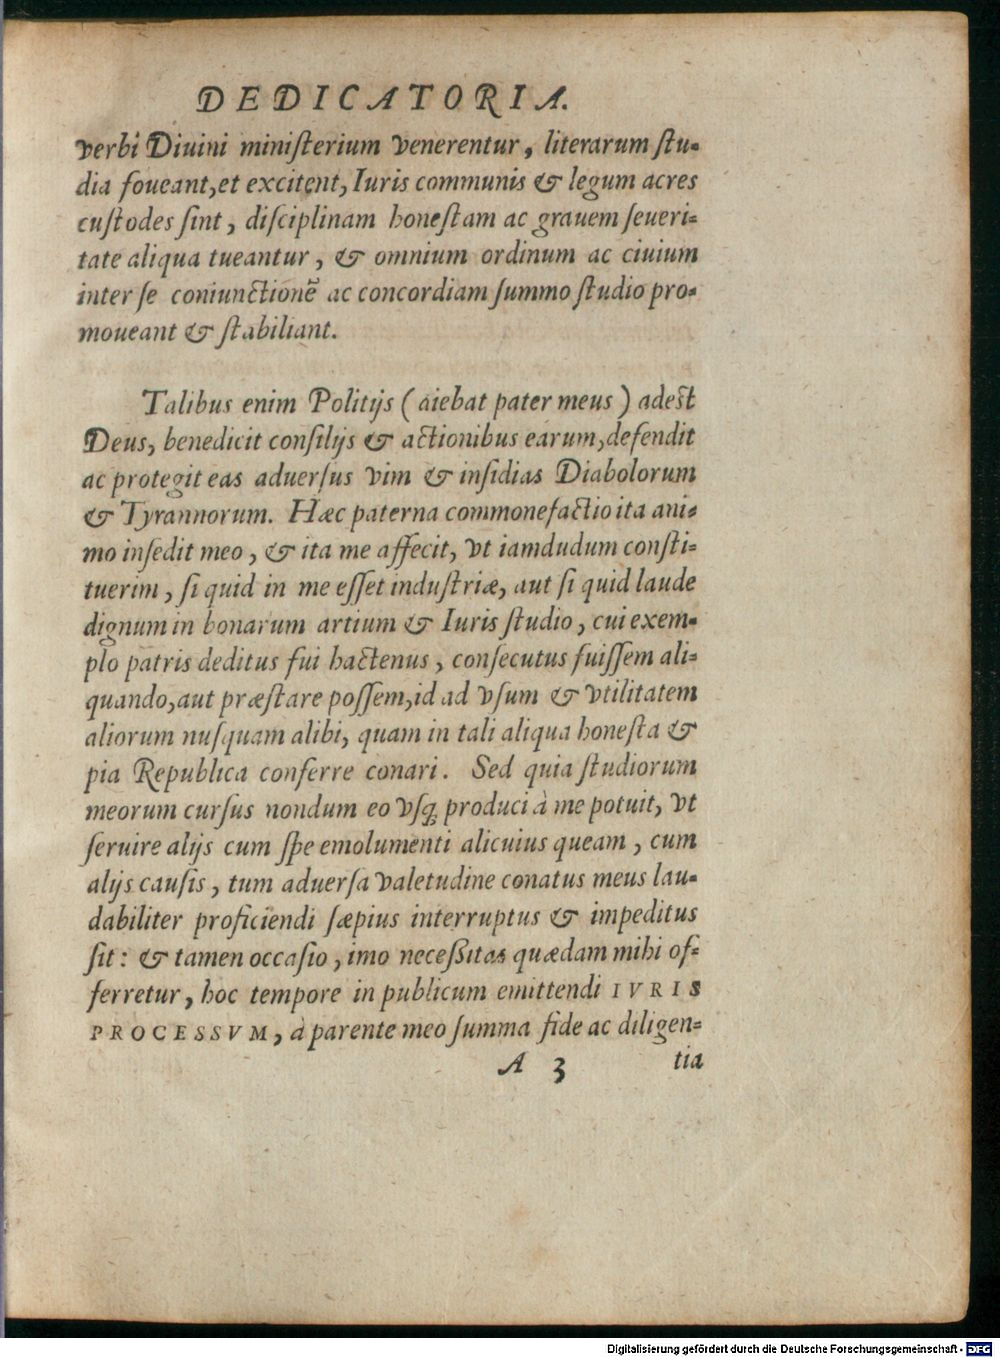 DEDICATORIA.
verbi Diuini ministerium venerentur, literarum stu-
dia foueant, et excitent, Iuris communis & legum acres
custodes sint, disciplinam honestam ac grauem seueri-
tate aliqua tueantur, & omnium ordinum ac ciuium
inter se coniunctionē ac concordiam summo studio pro-
moueant & stabiliant.
Talibus enim Politijs (aiebat pater meus) adest
Deus, benedicit consilijs & actionibus earum, defendit
ac protegit eas aduersus vim & insidias Diabolorum
& Tyrannorum. Hæc paterna commonefactio ita ani-
mo insedit meo, & ita me affecit, vt iamdudum consti-
tuerim, si quid in me esset industriæ, aut si quid laude
dignum in bonarum artium & Iuris studio, cui exem-
plo patris deditus fui hactenus, consecutus fuissem ali-
quando, aut præstare possem, id ad vsum & vtilitatem
aliorum nusquam alibi, quam in tali aliqua honesta &
pia Republica conferre conari. Sed quia studiorum
meorum cursus nondum eo vsq; produci à me potuit, vt
seruire alijs cum spe emolumenti alicuius queam, cum
alijs causis, tum aduersa valetudine conatus meus lau-
dabiliter proficiendi sæpius interruptus & impeditus
sit: & tamen occasio, imo necessitas quædam mihi of-
ferretur, hoc tempore in publicum emittendi IVRIS
PROCESSVM, à parente meo summa fide ac diligen-
A 3 tia
Digitalisierung gefördert durch die Deutsche Forschungsgemeinschaft - DFG